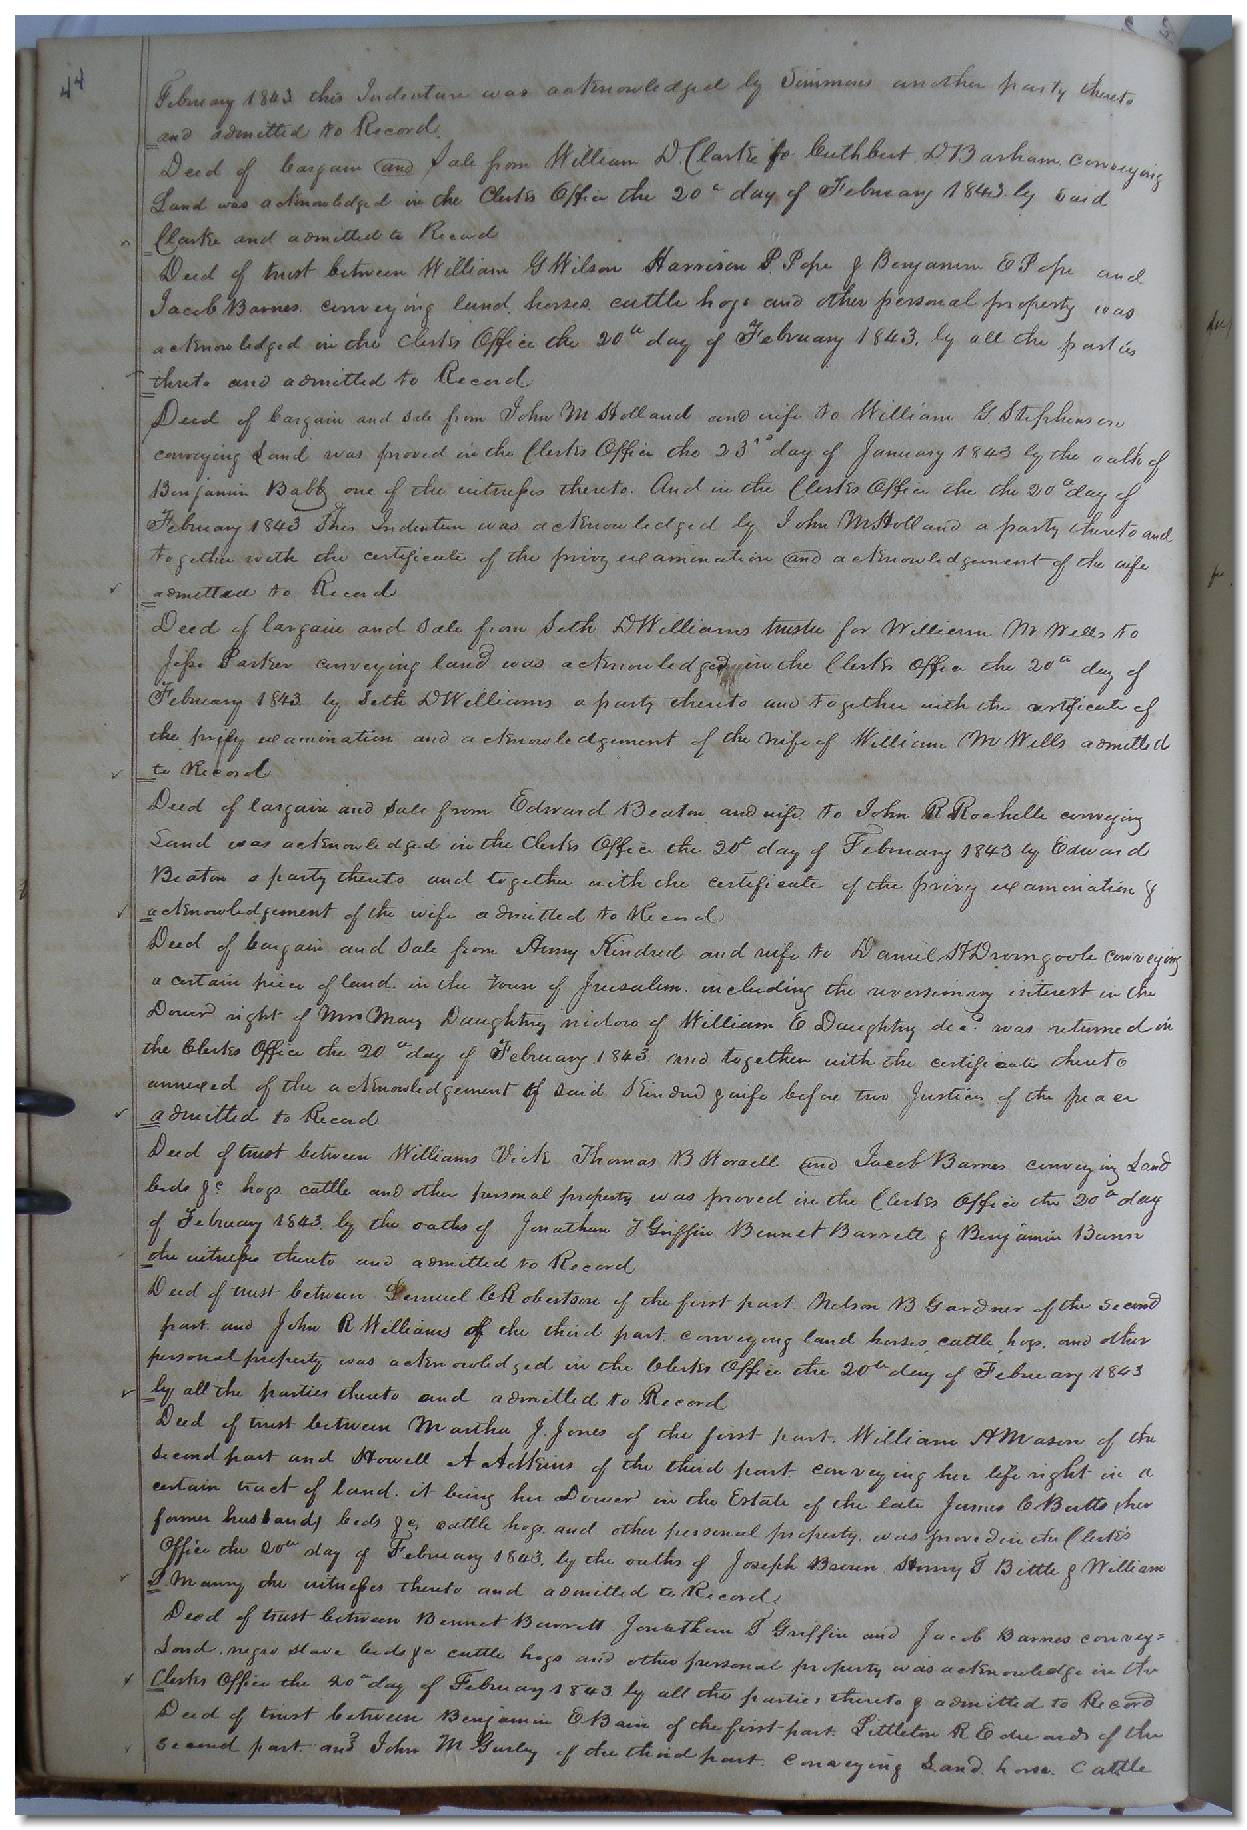 44
February 1843 this Indenture was acknowledged by Simmons another party thereto
and admitted to Record.
Deed of bargain and Sale from William D. Clarke to Cuthbert D Barham conveying
Land was acknowledged in the Clerks Office the 20th day of February 1843 by said
Clarke and admitted to Record
Deed of trust between William G Wilson Harrison P. Pope & Benjamin E Pope and
Jacob Barnes conveying land, horses, cattle hogs and other personal property was
acknowledged in the Clerks Office the 20th day of February 1843, by all the parties
thereto and admitted to Record
Deed of bargain and sale from John M Holland and wife to William G. Stephenson
conveying Land was proved in the Clerks Office the 23rd day of January 1843 by the oath of
Benjamin Babb one of the witnesses thereto. And in the Clerks Office the the 20th day of
February 1843 This Indenture was acknowledged by John M Holland a party thereto and
together with the certificate of the privy examination and acknowledgement of the wife
admitted to Record
Deed of bargain and sale from Seth D Williams trustee for William M Wells to
Jesse Parker conveying land was acknowledged in the Clerks Office the 20th day of
February 1843 by Seth D Williams a party thereto and together with the certificate of
the privy examination and acknowledgement of the wife of William M Wells admitted
to Record
Deed of bargain and sale from Edward Beaton and wife to John R Rochelle conveying
Land was acknowledged in the Clerks Office the 20t day of February 1843 by Edward
Beaton a party thereto and together with the certificate of the privy examination &
acknowledgement of the wife admitted to Record
Deed of bargain and sale from Kindred and wife to Daniel H Dromgoole conveying
a certain piece of land in the Town of Jerusalem including the reversionary interest in the
Dower right of Mrs Mary Daughtry widow of William E Daughtry decd. was returned in
the Clerks Office the 20th day of February 1843 and together with the certificate thereto
annexed of the acknowledgement of said Kindred & wife before two Justices of the peace
admitted to Record
Deed of trust between Williams Vick Thomas B Worrell and Jacob Barnes conveying Land
beds &c hogs cattle and other personal property was proved in the Clerks Office the 20th day
of February 1843, by the oaths of Jonathan T Griffin Bennet Barrett & Benjamin
the witnesses thereto and admitted to Record
Deed of trust between Lemuel C Robertson of the first part Nelson B Gardner of the second
part and John R Williams of the third part conveying land horses, cattle, hogs, and other
personal property was acknowledged in the Clerks Office the 20th day of February 1843
by all the parties thereto and admitted to Record
Deed of trust between Martha J. Jones of the first part, William H Mason of the
second part and Howell A Adkins of the third part conveying her life right in a
certain tract of land, it being her Dower in the Estate of the late James C Butts (her
former husband) beds &c cattle hogs and other personal property, was proved in the Clerks
Office the 20th day of February 1843, by the oaths of Joseph Henry T Bittle & William
the witnesses thereto and admitted to Record.
Deed of trust between Bennet Barrett Jonathan T Griffin and Jacob Barnes convey=
Land, negro slave beds &c cattle hogs and other personal property was acknowledge in the
Clerks Office the 20th day of February 1843 by all the parties thereto & admitted to Record
Deed of trust between Benjamin E Bain of the first part Littleton R Edwards of the
second part and John M Gurley of the third part conveying Land, horse, Cattle